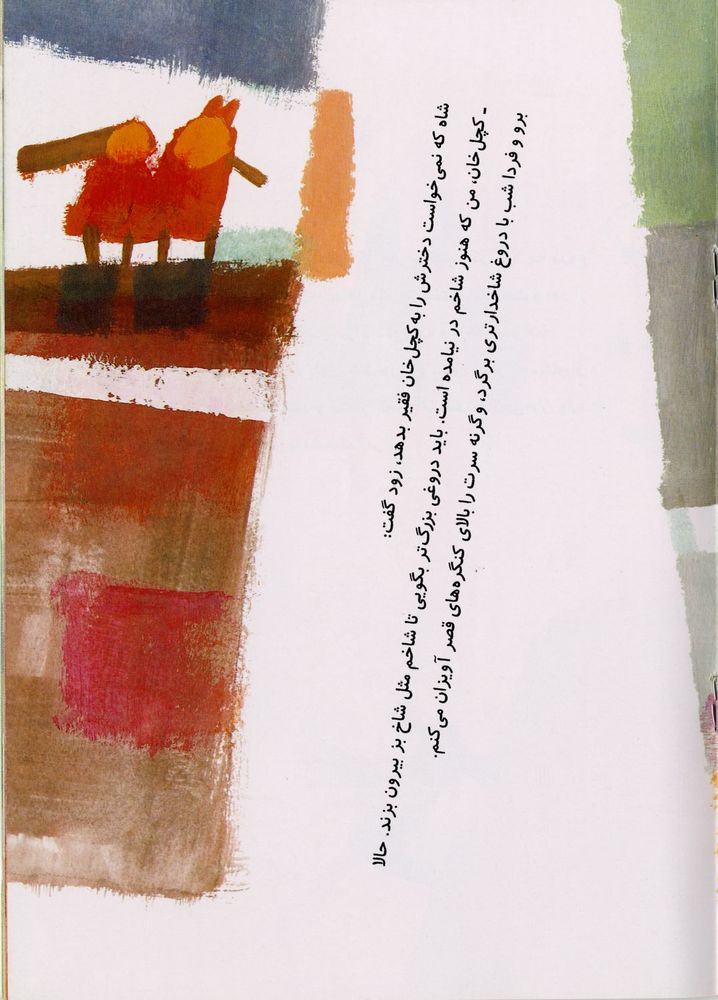 شاه که نمی‌خواست دخترش را به کچل‌خان فقیر بدهد، زود گفت:
- کچل‌خان، من که هنوز شاخم در نیامده است. باید دروغی بزرگ‌تر بگویی تا شاخم مثل شاخ بز بیرون بزند. حالا
برو و فردا شب با دروغ شاخدارتری برگرد، وگرنه سرت را بالای کنگره‌های قصر آویزان می‌کنم.